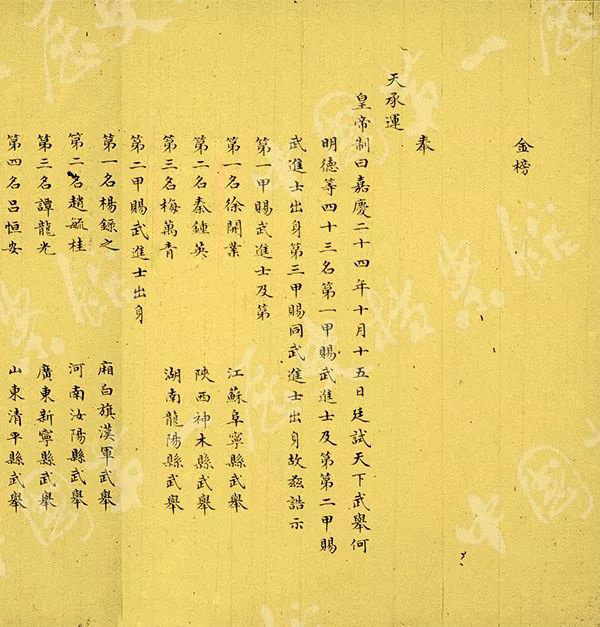 金榜
奉
天承運
皇帝制曰嘉慶二十四年十月十五日廷試天下武舉何
明德等四十三名第一甲賜武進士及第第二甲賜
武進士出身第三甲賜同武進士出身故茲誥示
第一甲賜武進士及第
第一名徐開業 江蘇阜寧縣武舉
第二名秦鍾英 陝西神木縣武舉
第三名梅萬青 湖南龍陽縣武舉
第二甲賜武進士出身
第一名楊錄之 廂白旗漢軍武舉
第二名趙毓桂 河南汝陽縣武舉
第三名譚龍光 廣東新寧縣武舉
第四名呂恒安 山東清平縣武舉